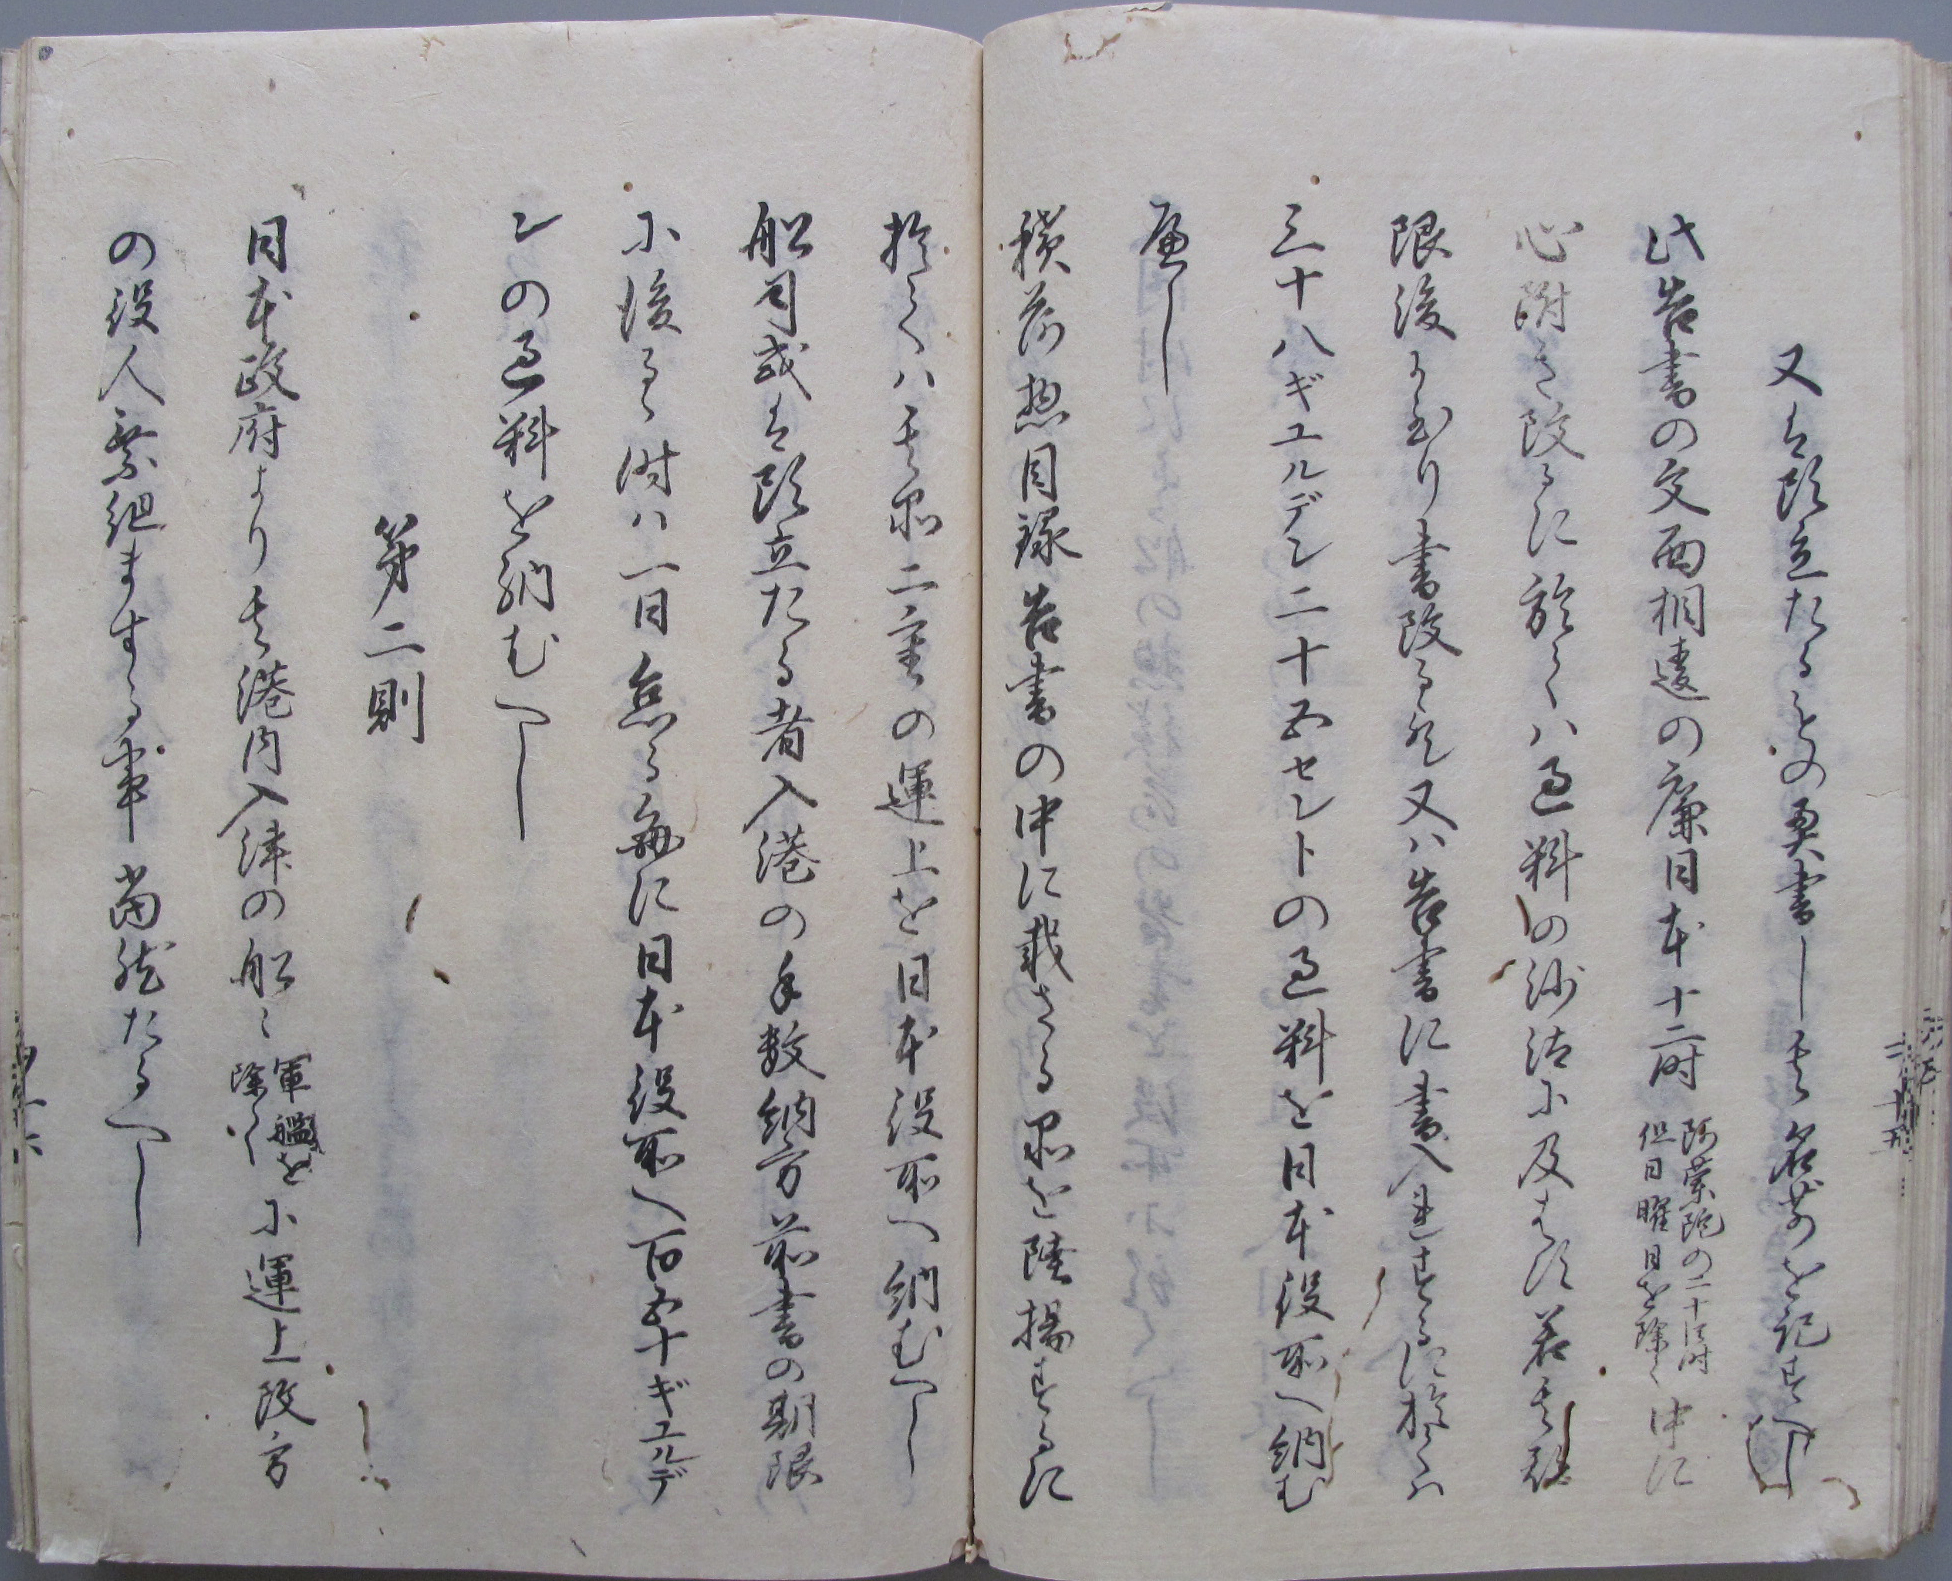 又は頭立たるものゝ奥書し其名前を記すへし
此告書の文面相違の廉日本十二時 阿蘭陀の二十四時 但日曜日を除く 中に
心附き改るに於てハ過料の沙汰に及はす若其刻
限後に至り書改るか又ハ告書に書入れするに於てハ
三十八ギユルデン二十五セントの過料を日本役所へ納む
へし
積荷惣目録告書の中に載さる品を陸揚するに
於てハ其品二重の運上を日本役所へ納むへし
船司或は頭立たる者入港の手数納方前書の期限
に後るゝ時ハ一日怠る毎に日本役所へ百五十ギユルデ
ンの過料を納むへし
第二則
日本政府より其港内入津の船々 軍艦を除く に運上改方
の役人乗組まする事当然たるへし